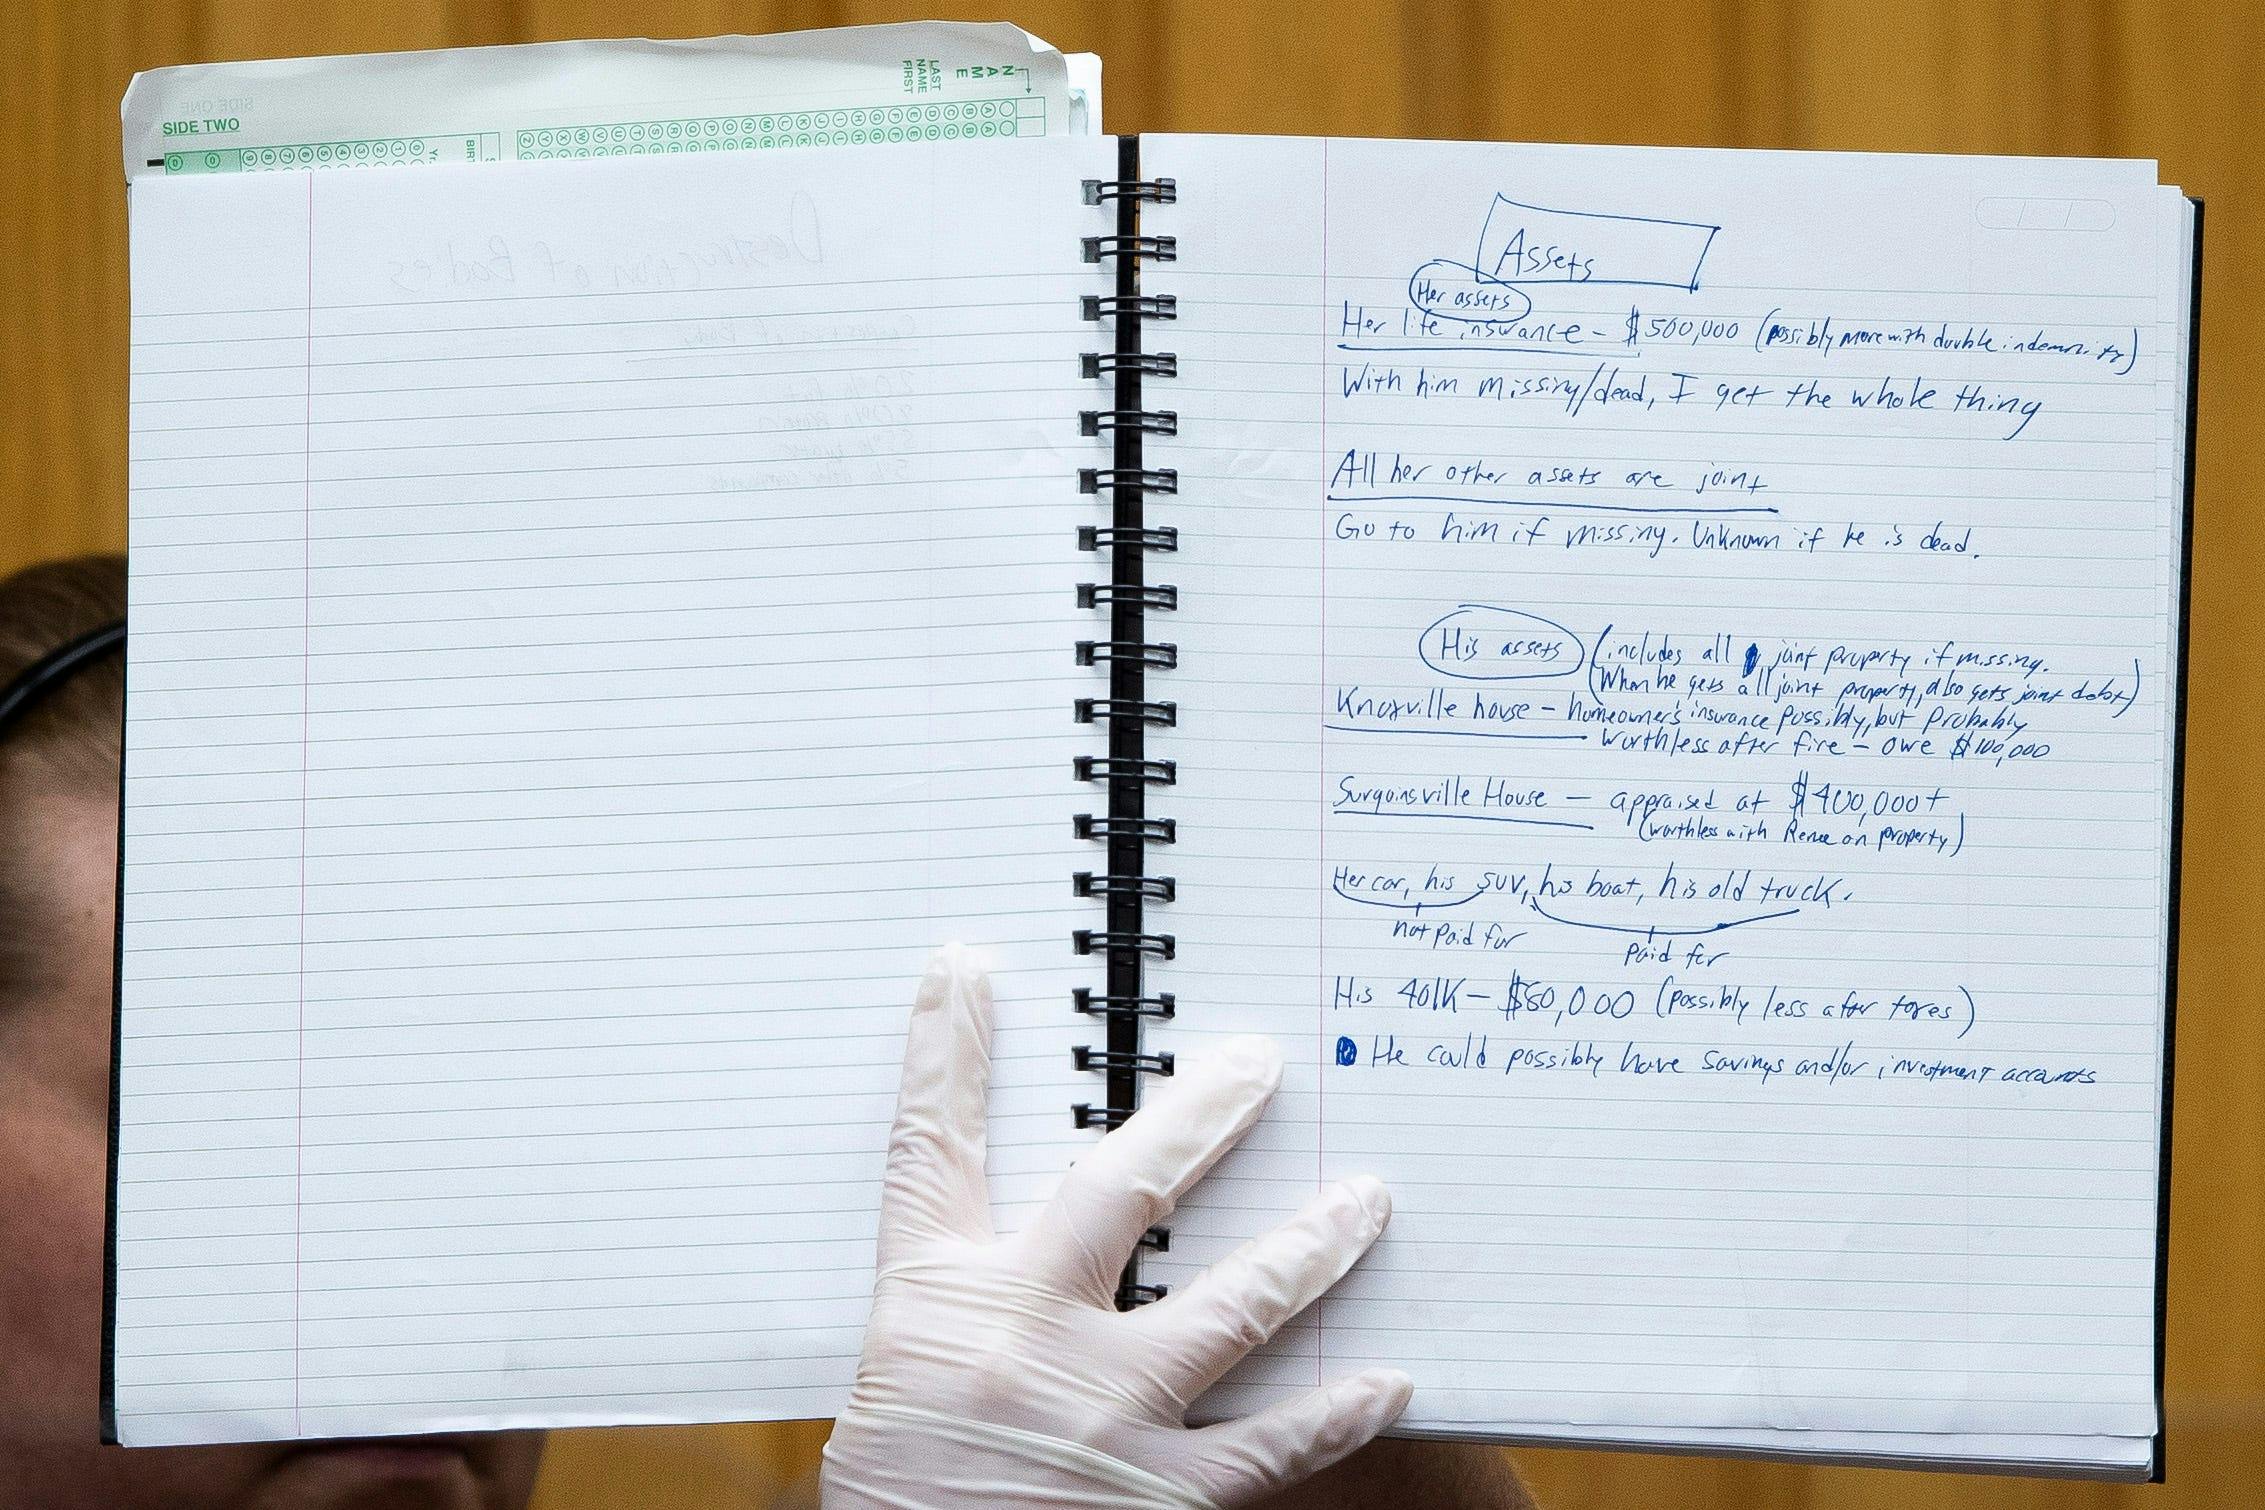 NAME
LAST NAME
FIRST
SIDE ONE
SIDE TWO
Destruction of Bodies
Assets
Her assets
Her life insurance – $500,000 (possibly more with double indemnity)
With him missing/dead, I get the whole thing
All her other assets are joint
Go to him if missing. Unknown if he is dead.
His assets (includes all joint property if missing.
When he gets all joint property, also gets joint debt)
Knoxville house – homeowner's insurance possibly, but probably
worthless after fire – owe $100,000
Surgoinsville House – appraised at $400,000+
(worthless with Renee on property)
Her car, his SUV, his boat, his old truck.
not paid for
paid for
His 401K – $80,000 (possibly less after taxes)
He could possibly have savings and/or investment accounts